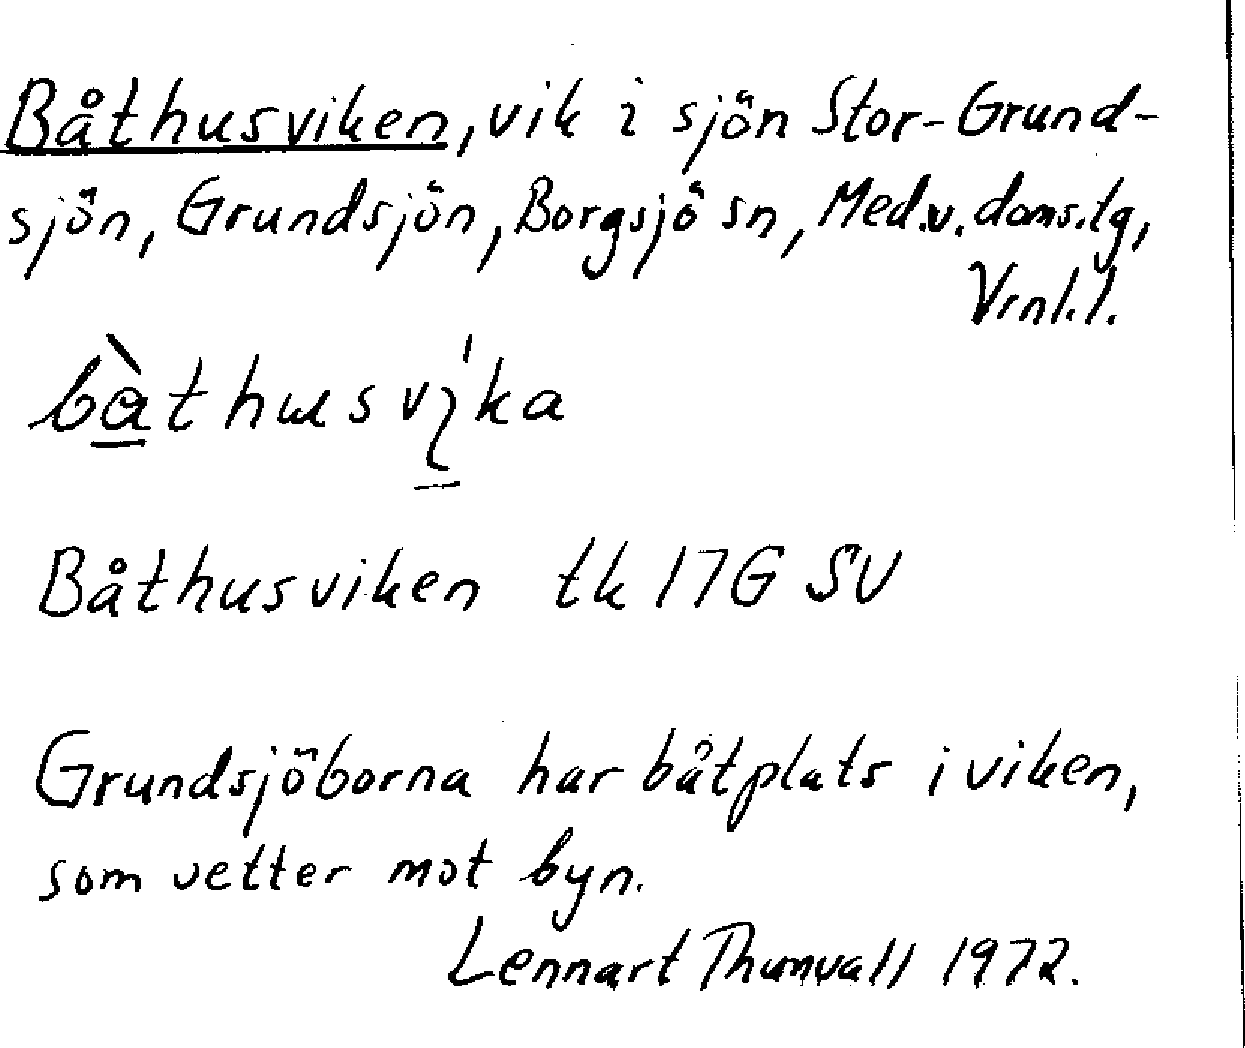 Båthusviken, vik i sjön Stor-Grund-
sjön, Grundsjön, Borgsjö sn, Med.v. doms.lg,
Vrnl.l.
Båthusviken tk 17G SV
Grundsjöborna har båtplats i viken,
som vetter mot byn.
Lennart Thunvall 1972.